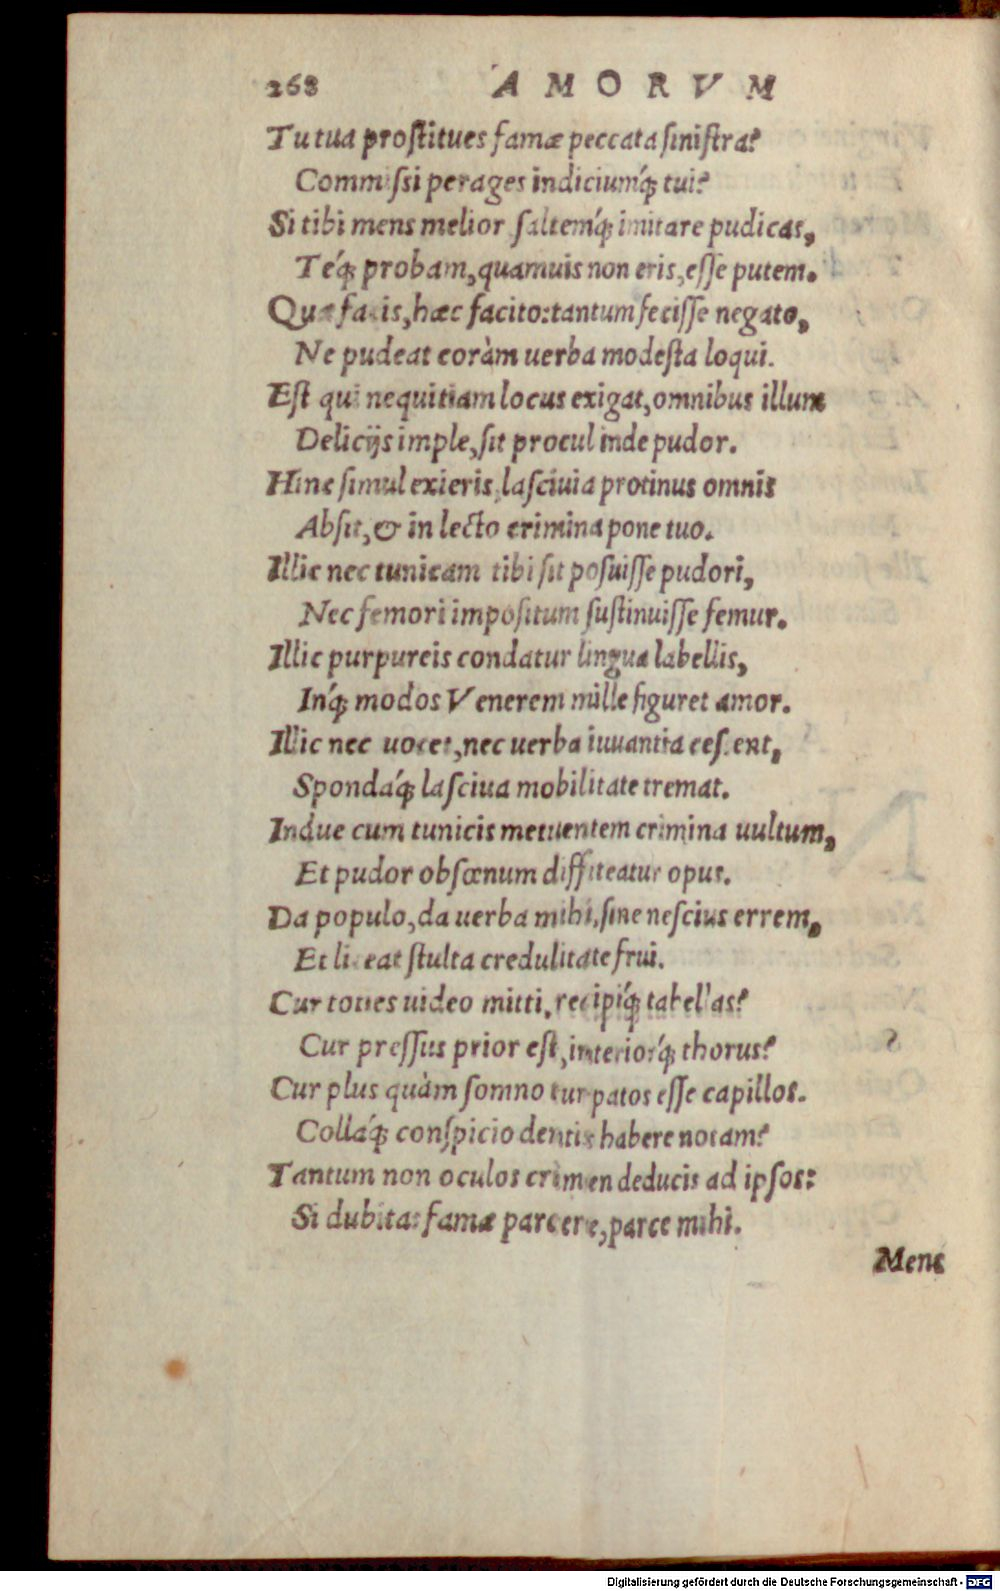 268 AMORVM
Tu tua prostitues famæ peccata sinistra?
Commissi perages indiciumq́; tui?
Si tibi mens melior saltemq́; imitare pudicas,
Teq́; probam, quamuis non eris, esse putem.
Quæ facis, hæc facito: tantum fecisse negato,
Ne pudeat coràm uerba modesta loqui.
Est qui nequitiam locus exigat, omnibus illum
Delicijs imple, sit procul inde pudor.
Hinc simul exieris, lasciuia protinus omnis
Absit, & in lecto crimina pone tuo.
Illic nec tunicam tibi sit posuisse pudori,
Nec femori impositum sustinuisse femur.
Illic purpureis condatur lingua labellis,
Inq́; modos Venerem mille figuret amor.
Illic nec uoces, nec uerba iuuantia cessent,
Spondaq́; lasciua mobilitate tremat.
Indue cum tunicis metuentem crimina uultum,
Et pudor obscœnum diffiteatur opus.
Da populo, da uerba mihi, sine nescius errem,
Et liceat stulta credulitate frui.
Cur toties uideo mitti, recipiq́; tabellas?
Cur pressus prior est, interiorq́; thorus?
Cur plus quàm somno turpatos esse capillos.
Collaq́; conspicio dentis habere notam?
Tantum non oculos crimen deducis ad ipsos:
Si dubitas famæ parcere, parce mihi.
Mens
Digitalisierung gefördert durch die Deutsche Forschungsgemeinschaft - DFG